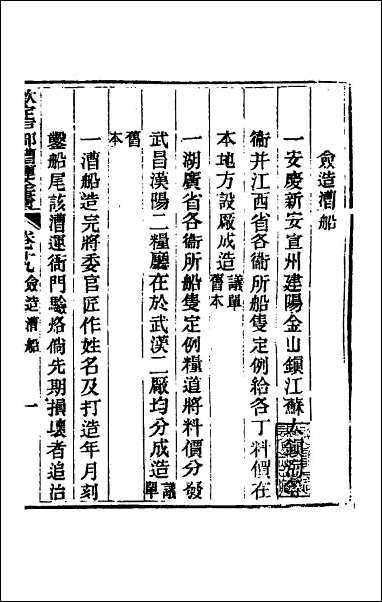 僉造漕船
一安慶新安宣州建陽金山鎮江蘇太鎮海等
衞并江西省各衞所船隻定例給各丁料價在
本地方設厰成造議單舊本
一湖廣省各衞所船隻定例糧道將料價分發
武昌漢陽二糧廳在於武漢二厰均分成造議單
舊本
一漕船造完將委官匠作姓名及打造年月刻
鑿船尾該漕運衙門驗烙倘先期損壞者追治
欽定戶部漕運全書 卷十九 僉造漕船 一